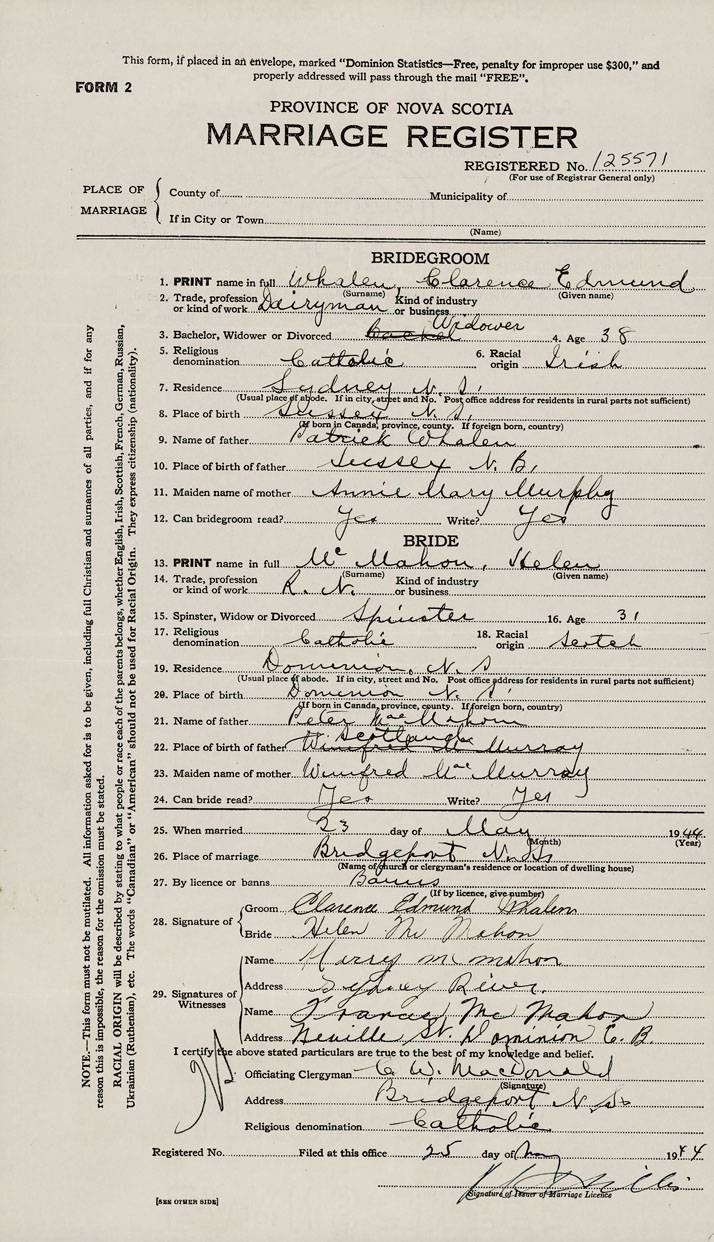 This form, if placed in an envelope, marked "Dominion Statistics—Free, penalty for improper use $300," and
properly addressed will pass through the mail "FREE".
FORM 2
PROVINCE OF NOVA SCOTIA
MARRIAGE REGISTER
REGISTERED No. 125571
(For use of Registrar General only)
PLACE OF MARRIAGE
County of Municipality of
If in City or Town
(Name)
BRIDEGROOM
1. PRINT name in full Whalen, Clarence Edmund
(Surname) (Given name)
2. Trade, profession or kind of work Dairyman Kind of industry or business
3. Bachelor, Widower or Divorced Widower 4. Age 38
5. Religious denomination Catholic 6. Racial origin Irish
7. Residence Sydney N. S.
(Usual place of abode. If in city, street and No. Post office address for residents in rural parts not sufficient)
8. Place of birth Sussex N. S.
(If born in Canada, province, county. If foreign born, country)
9. Name of father Patrick Whalen
10. Place of birth of father Sussex N. B.
11. Maiden name of mother Annie Mary Murphy
12. Can bridegroom read? Yes Write? Yes
BRIDE
13. PRINT name in full Mc Mahon, Helen
(Surname) (Given name)
14. Trade, profession or kind of work R. N. Kind of industry or business
15. Spinster, Widow or Divorced Spinster 16. Age 31
17. Religious denomination Catholic 18. Racial origin Scotch
19. Residence Dominion, N. S
(Usual place of abode. If in city, street and No. Post office address for residents in rural parts not sufficient)
20. Place of birth Dominion N. S.
(If born in Canada, province, county. If foreign born, country)
21. Name of father Peter MacMahon
Scotland
22. Place of birth of father Winifred Mc Murray
23. Maiden name of mother Winifred Mac Murray
24. Can bride read? Yes Write? Yes
25. When married 23 day of May 1944
(Month) (Year)
26. Place of marriage Bridgeport N. S.
(Name of church or clergyman's residence or location of dwelling house)
27. By licence or banns Banns
(If by licence, give number)
28. Signature of
Groom Clarence Edmund Whalen
Bride Helen Mc Mahon
29. Signatures of Witnesses
Name Harry mc mahon
Address Sydney River.
Name Frances Mc Mahon
Address Neville St. Dominion C. B
I certify the above stated particulars are true to the best of my knowledge and belief.
Officiating Clergyman C. W. MacDonald
(Signature)
Address Bridgeport N. S.
Religious denomination Catholic
Registered No. Filed at this office 25 day of May 1944
Signature of Issuer of Marriage Licence
[SEE OTHER SIDE]
NOTE.—This form must not be mutilated. All information asked for is to be given, including full Christian and surnames of all parties, and if for any
reason this is impossible, the reason for the omission must be stated.
RACIAL ORIGIN will be described by stating to what people or race each of the parents belongs, whether English, Irish, Scottish, French, German, Russian,
Ukrainian (Ruthenian), etc. The words "Canadian" or "American" should not be used for Racial Origin. They express citizenship (nationality).